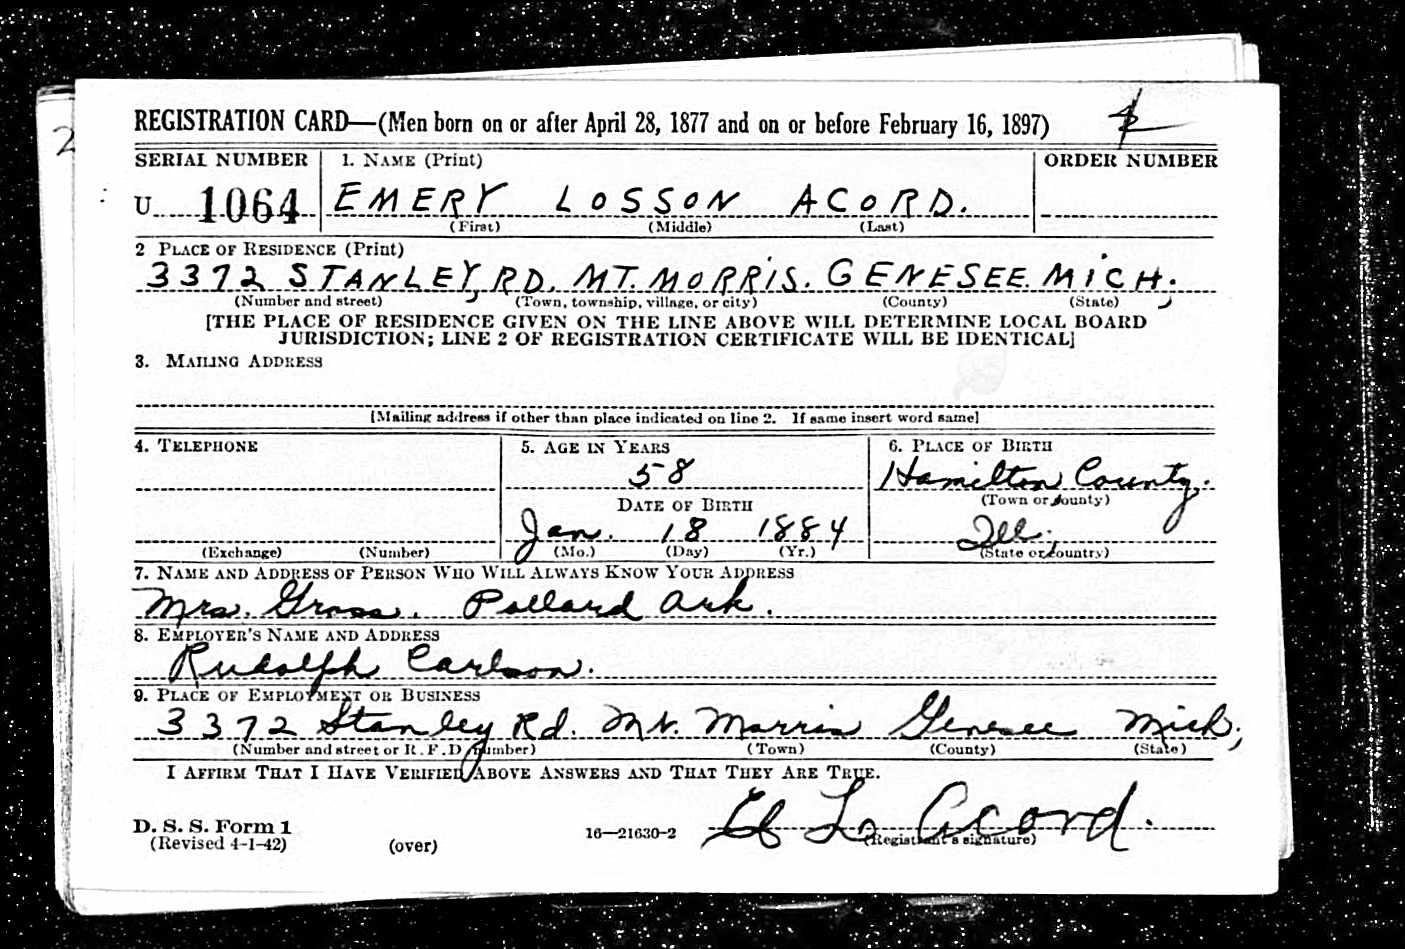 2
REGISTRATION CARD—(Men born on or after April 28, 1877 and on or before February 16, 1897)
SERIAL NUMBER 1. NAME (Print) ORDER NUMBER
U 1064 EMERY LOSSON ACORD.
(First) (Middle) (Last)
2 PLACE OF RESIDENCE (Print)
3372 STANLEY, RD. MT. MORRIS. GENESEE. MICH;
(Number and street) (Town, township, village, or city) (County) (State)
[THE PLACE OF RESIDENCE GIVEN ON THE LINE ABOVE WILL DETERMINE LOCAL BOARD
JURISDICTION; LINE 2 OF REGISTRATION CERTIFICATE WILL BE IDENTICAL]
3. MAILING ADDRESS
[Mailing address if other than place indicated on line 2. If same insert word same]
4. TELEPHONE 5. AGE IN YEARS 6. PLACE OF BIRTH
58 Hamilton County.
DATE OF BIRTH (Town or county)
Jan. 18 1884 Ill.
(Exchange) (Number) (Mo.) (Day) (Yr.) (State or country)
7. NAME AND ADDRESS OF PERSON WHO WILL ALWAYS KNOW YOUR ADDRESS
Mrs. Gross. Pollard Ark.
8. EMPLOYER'S NAME AND ADDRESS
Rudolph Carlson.
9. PLACE OF EMPLOYMENT OR BUSINESS
3372 Stanley Rd. Mt. Morris Genesee Mich;
(Number and street or R. F. D. number) (Town) (County) (State)
I AFFIRM THAT I HAVE VERIFIED ABOVE ANSWERS AND THAT THEY ARE TRUE.
D. S. S. Form 1
(Revised 4-1-42) (over) 16—21630-2 E L Acord.
(Registrant's signature)